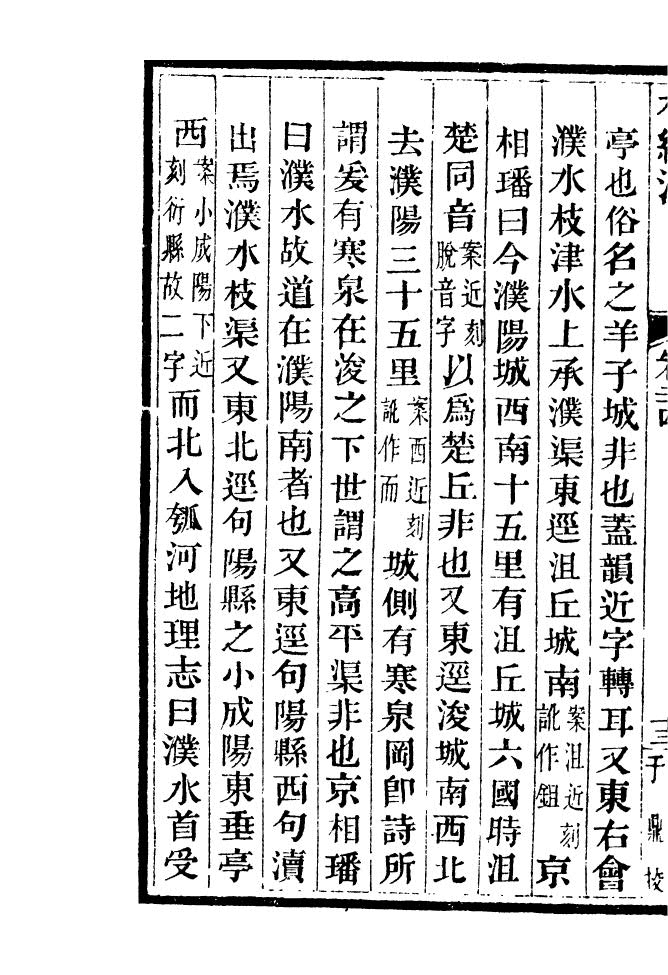 亭也俗名之羊子城非也蓋韻近字轉耳又東右會
濮水枝津水上承濮渠東逕沮丘城南案沮近刻訛作鉏京
相璠曰今濮陽城西南十五里有沮丘城六國時沮
楚同音案近刻脫音字以爲楚丘非也又東逕浚城南西北
去濮陽三十五里案西近刻訛作而城側有寒泉岡卽詩所
謂爰有寒泉在浚之下世謂之高平渠非也京相璠
曰濮水故道在濮陽南者也又東逕句陽縣西句瀆
出焉濮水枝渠又東北逕句陽縣之小成陽東垂亭
西案小成陽下近刻衍縣故二字而北入瓠河地理志曰濮水首受